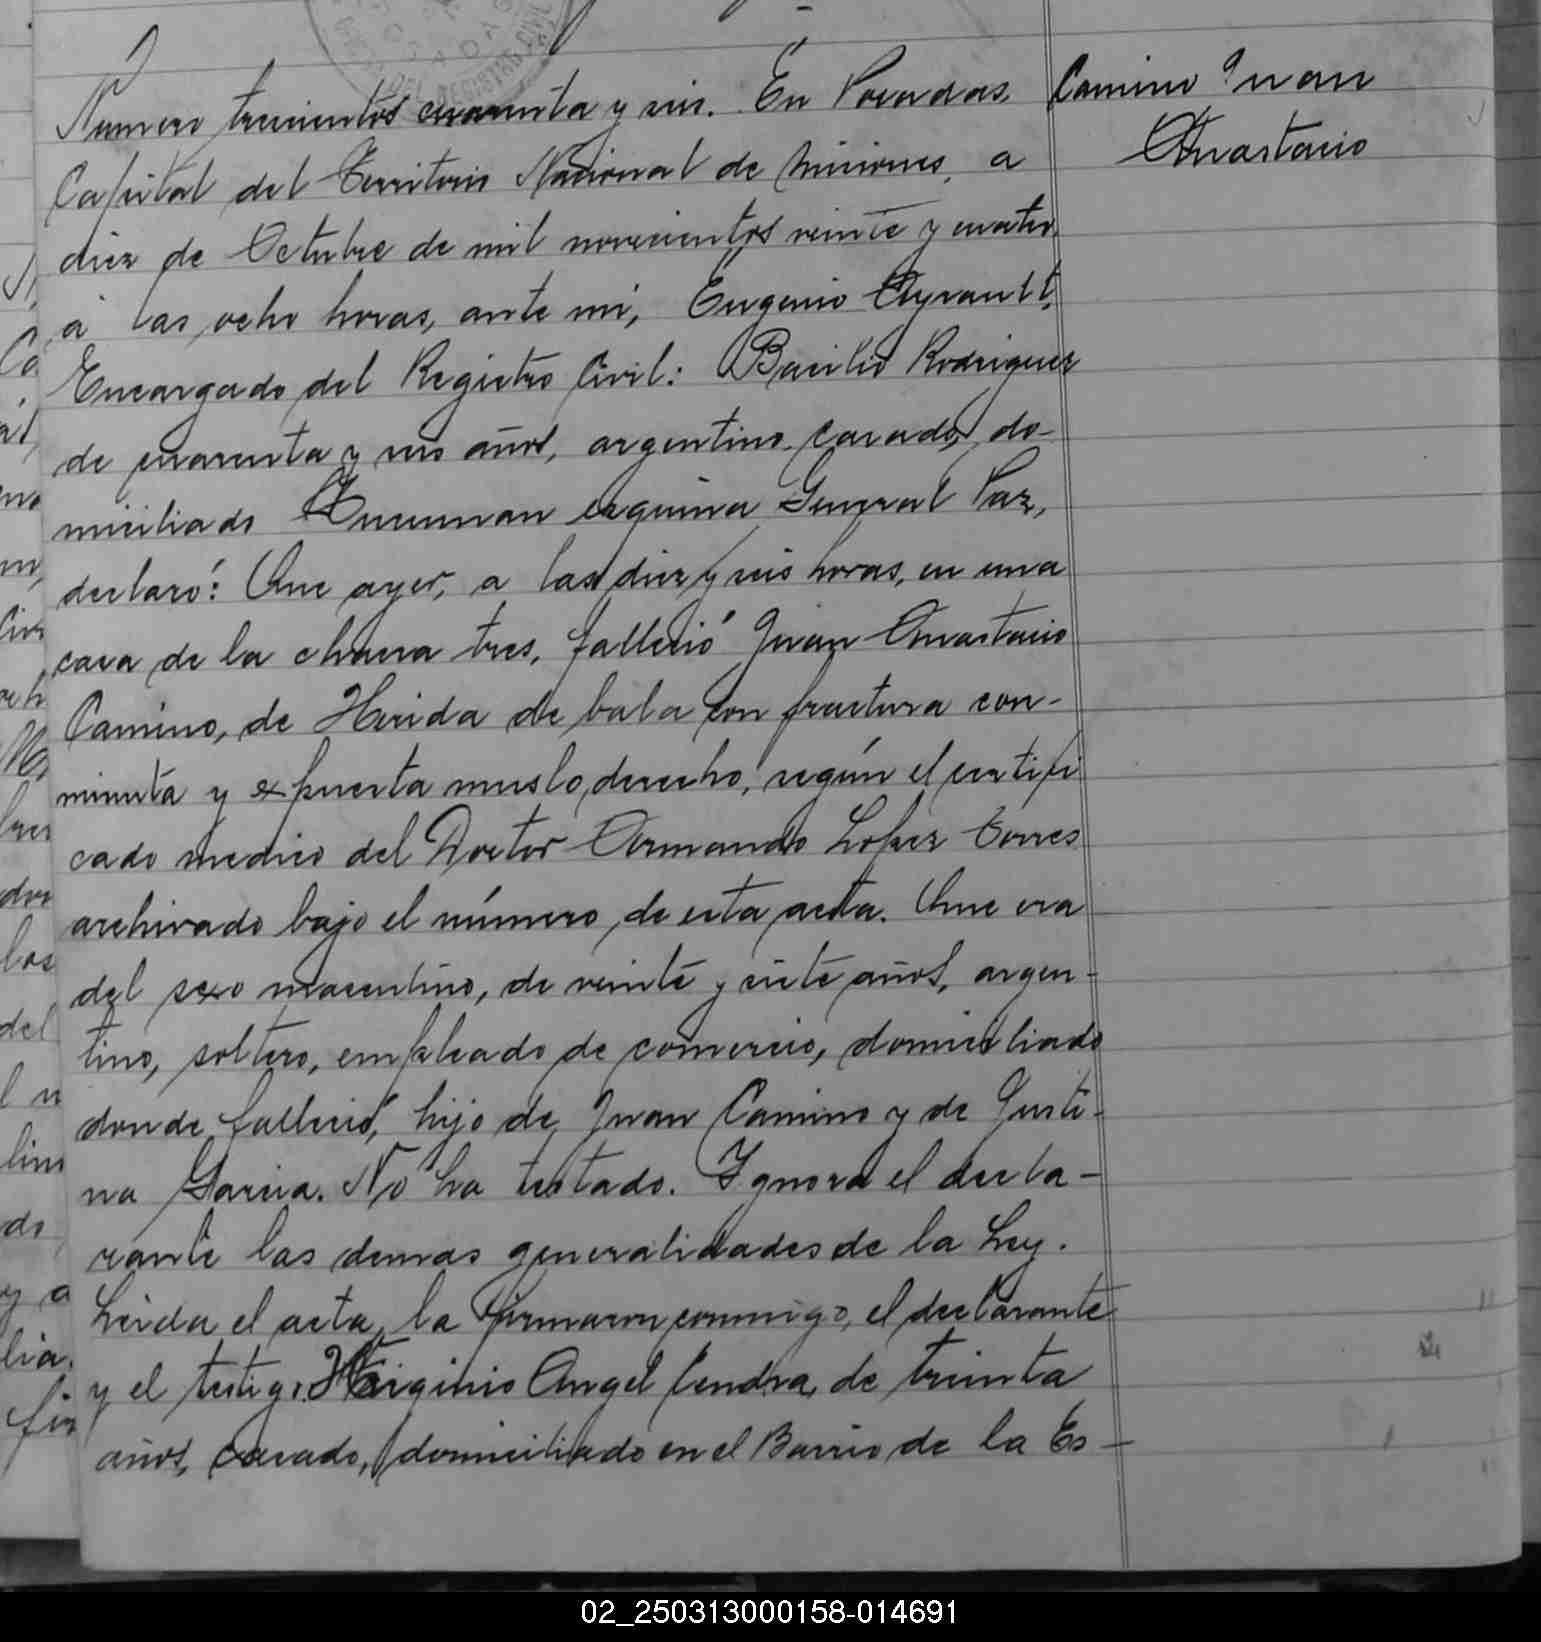 Numero trescientos cuarenta y seis. En Posadas,
Capital del Territorio Nacional de Misiones, a
diez de Octubre de mil novecientos veinte y cuatro
á las ocho horas, ante mí, Eugenio Ayrault,
Encargado del Registro Civil: Basilio Rodriguez
de cuarenta y seis años, argentino, casado, do-
miciliado Tucuman esquina General Paz,
declaró: Que ayer, a las diez y seis horas, en una
casa de la chacra tres, falleció Juan Anastacio
Camino, de Herida de bala con fractura con-
minuta y expuesta muslo derecho, según el certifi
cado medico del Doctor Armando Lopez Torres
archivado bajo el número de esta acta. Que era
del sexo masculino, de veinte y siete años, argen-
tino, soltero, empleado de comercio, domiciliado
donde falleció, hijo de Juan Camino y de Justi-
na Garcia. No ha testado. Ignora el decla-
rante las demas generalidades de la Ley.
Leida el acta, la firmaron conmigo, el declarante
y el testigo Higinio Angel Cendra, de treinta
años, casado, domiciliado en el Barrio de la Es-
Camino Juan
Anastacio
02_250313000158-014691